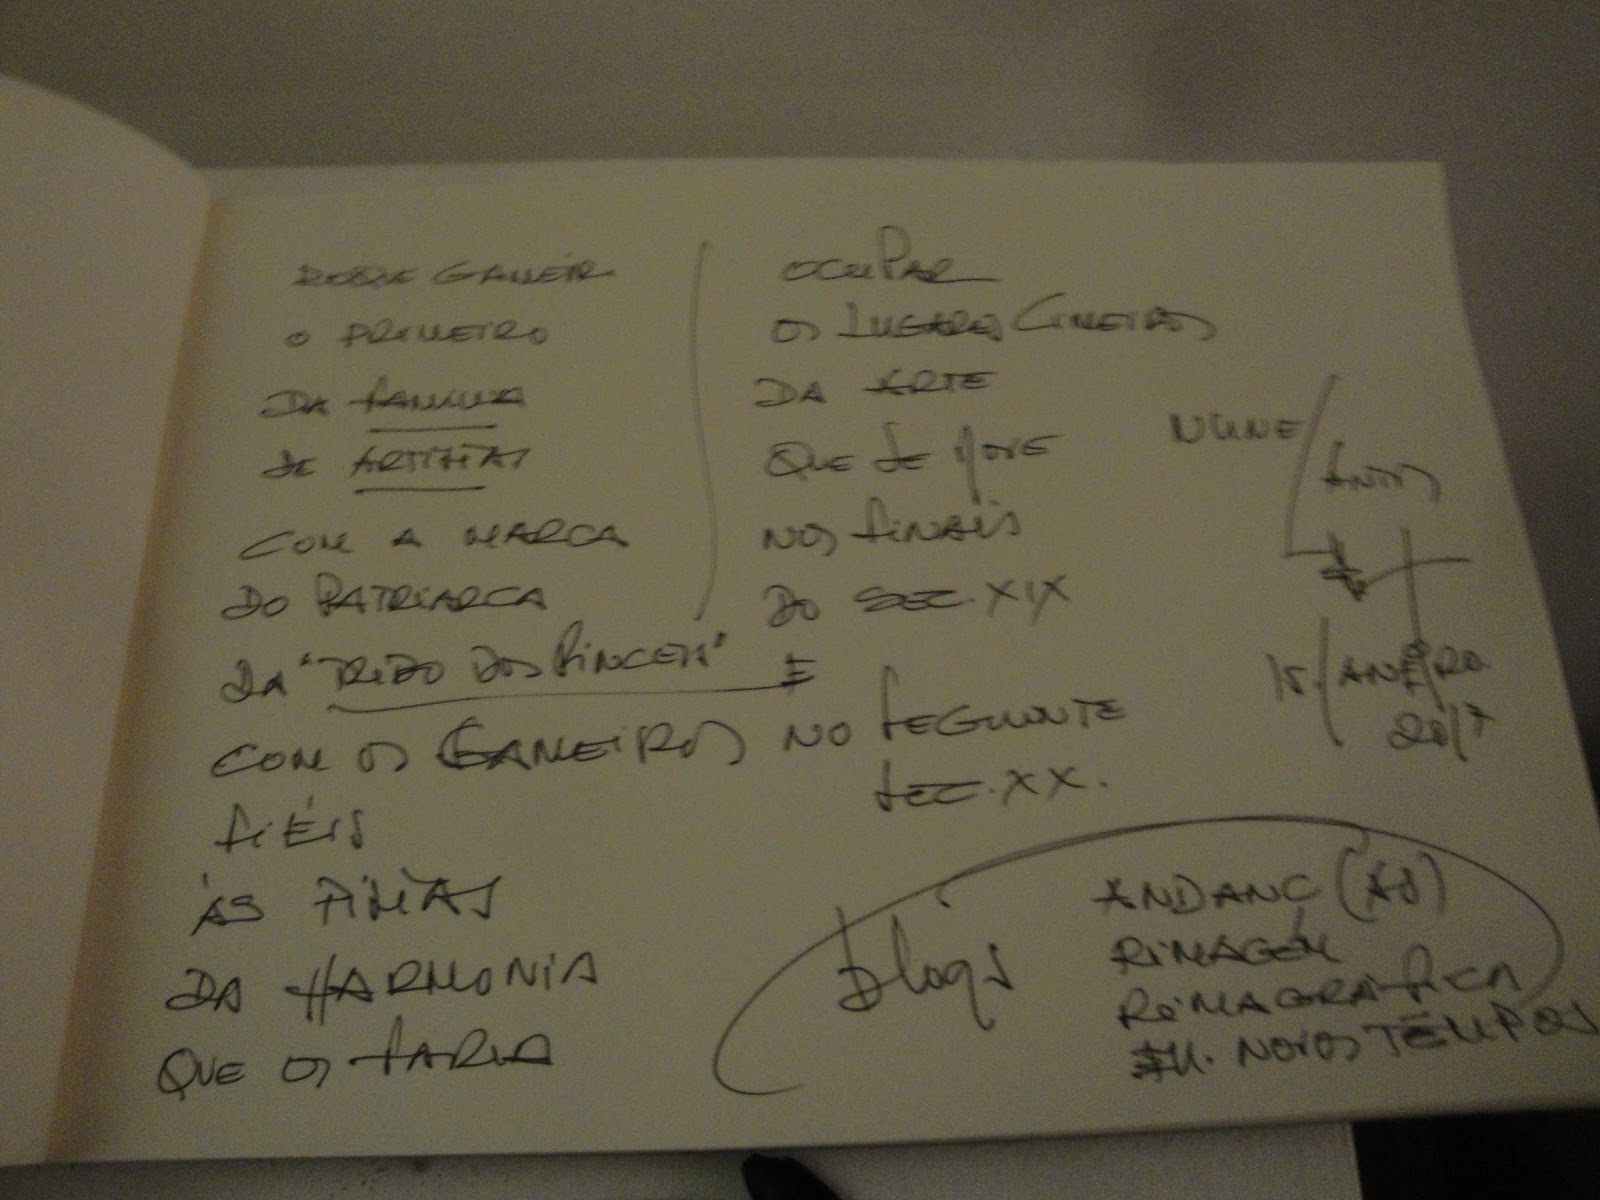 ROQUE GAMEIR
O PRIMEIRO
DA FAMILIA
DE ARTISTAS
COM A MARCA
DO PATRIARCA
DA "TRIBO DOS PINCEIS"
COM OS GAMEIROS
FIÉIS
ÀS TINTAS
DA HARMONIA
QUE OS FARIA
OCUPAR
OS LUGARES CIMEIROS
DA ARTE
QUE SE
NOS FINAIS
DO SEC. XIX
E
NO SEGUINTE
SEC. XX.
15 JANEIRO
2017
blogs
ANDANÇ(AS)
RIMAGEM
RIMAGRÁFICA
NOVOS TEMPOS